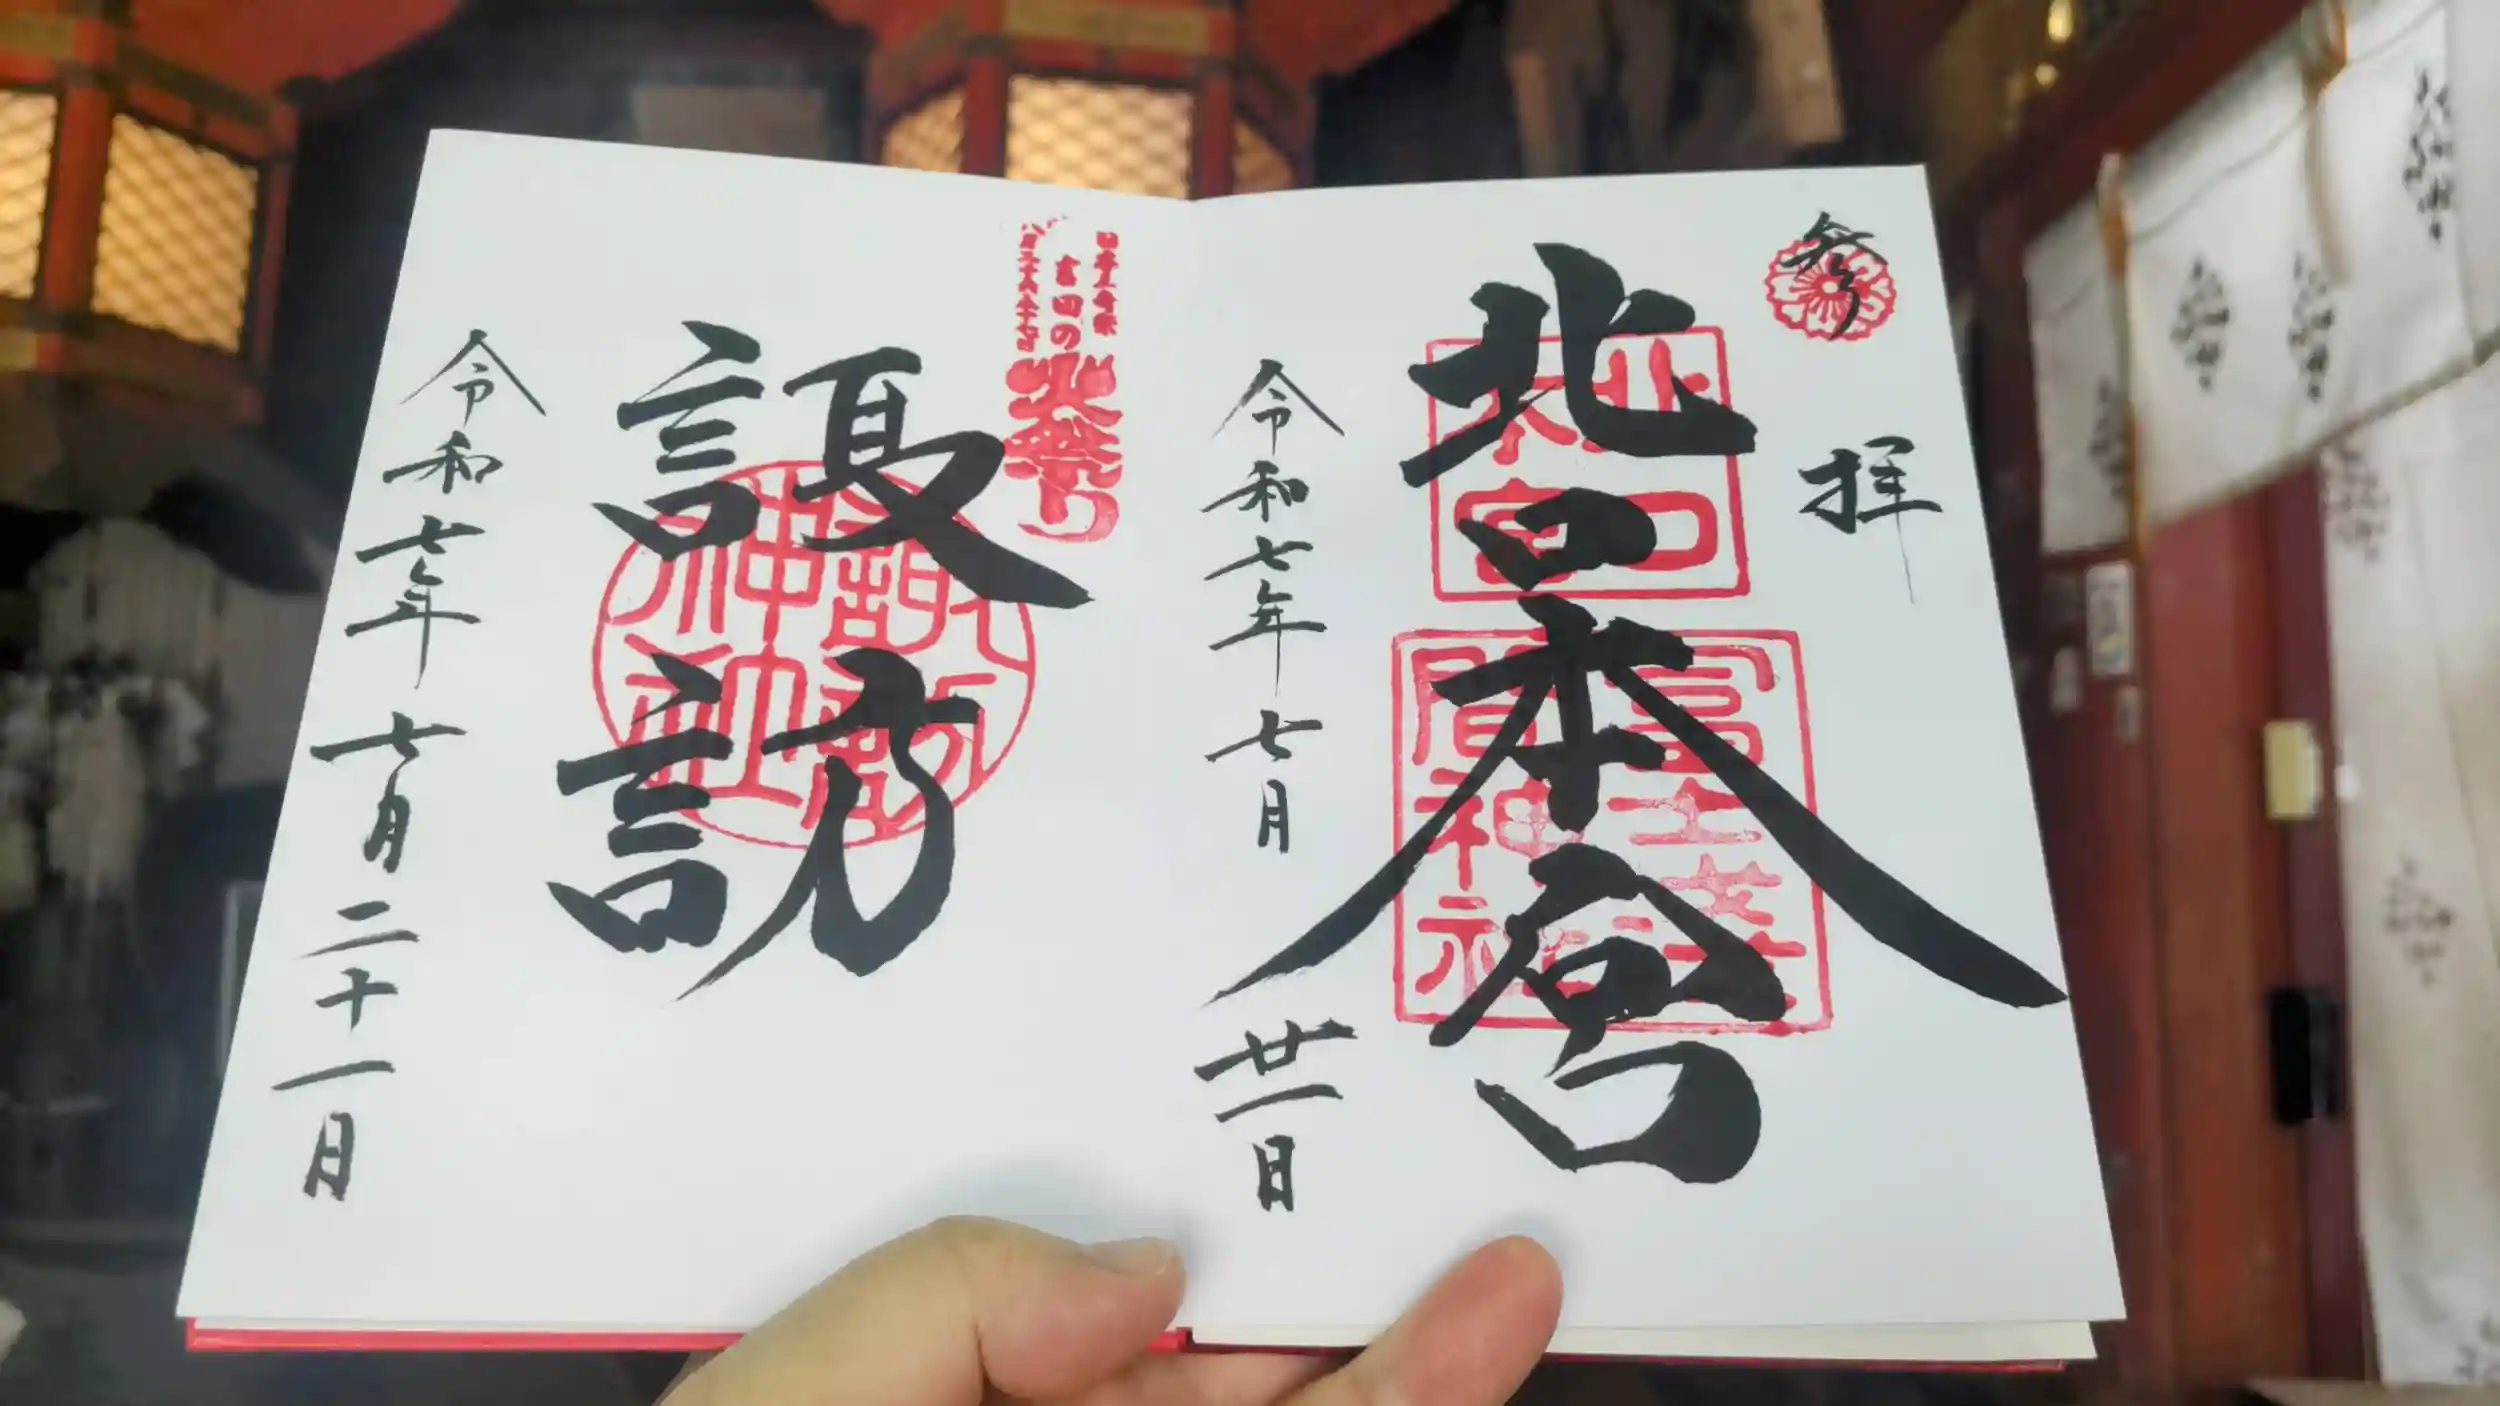 参拝
北口本宮
北口
本宮
冨士浅
間神社
令和七年七月廿一日
日本三奇祭
吉田の
火祭り
八月二十六・二十七日
諏訪
諏訪
神社
令和七年七月二十一日